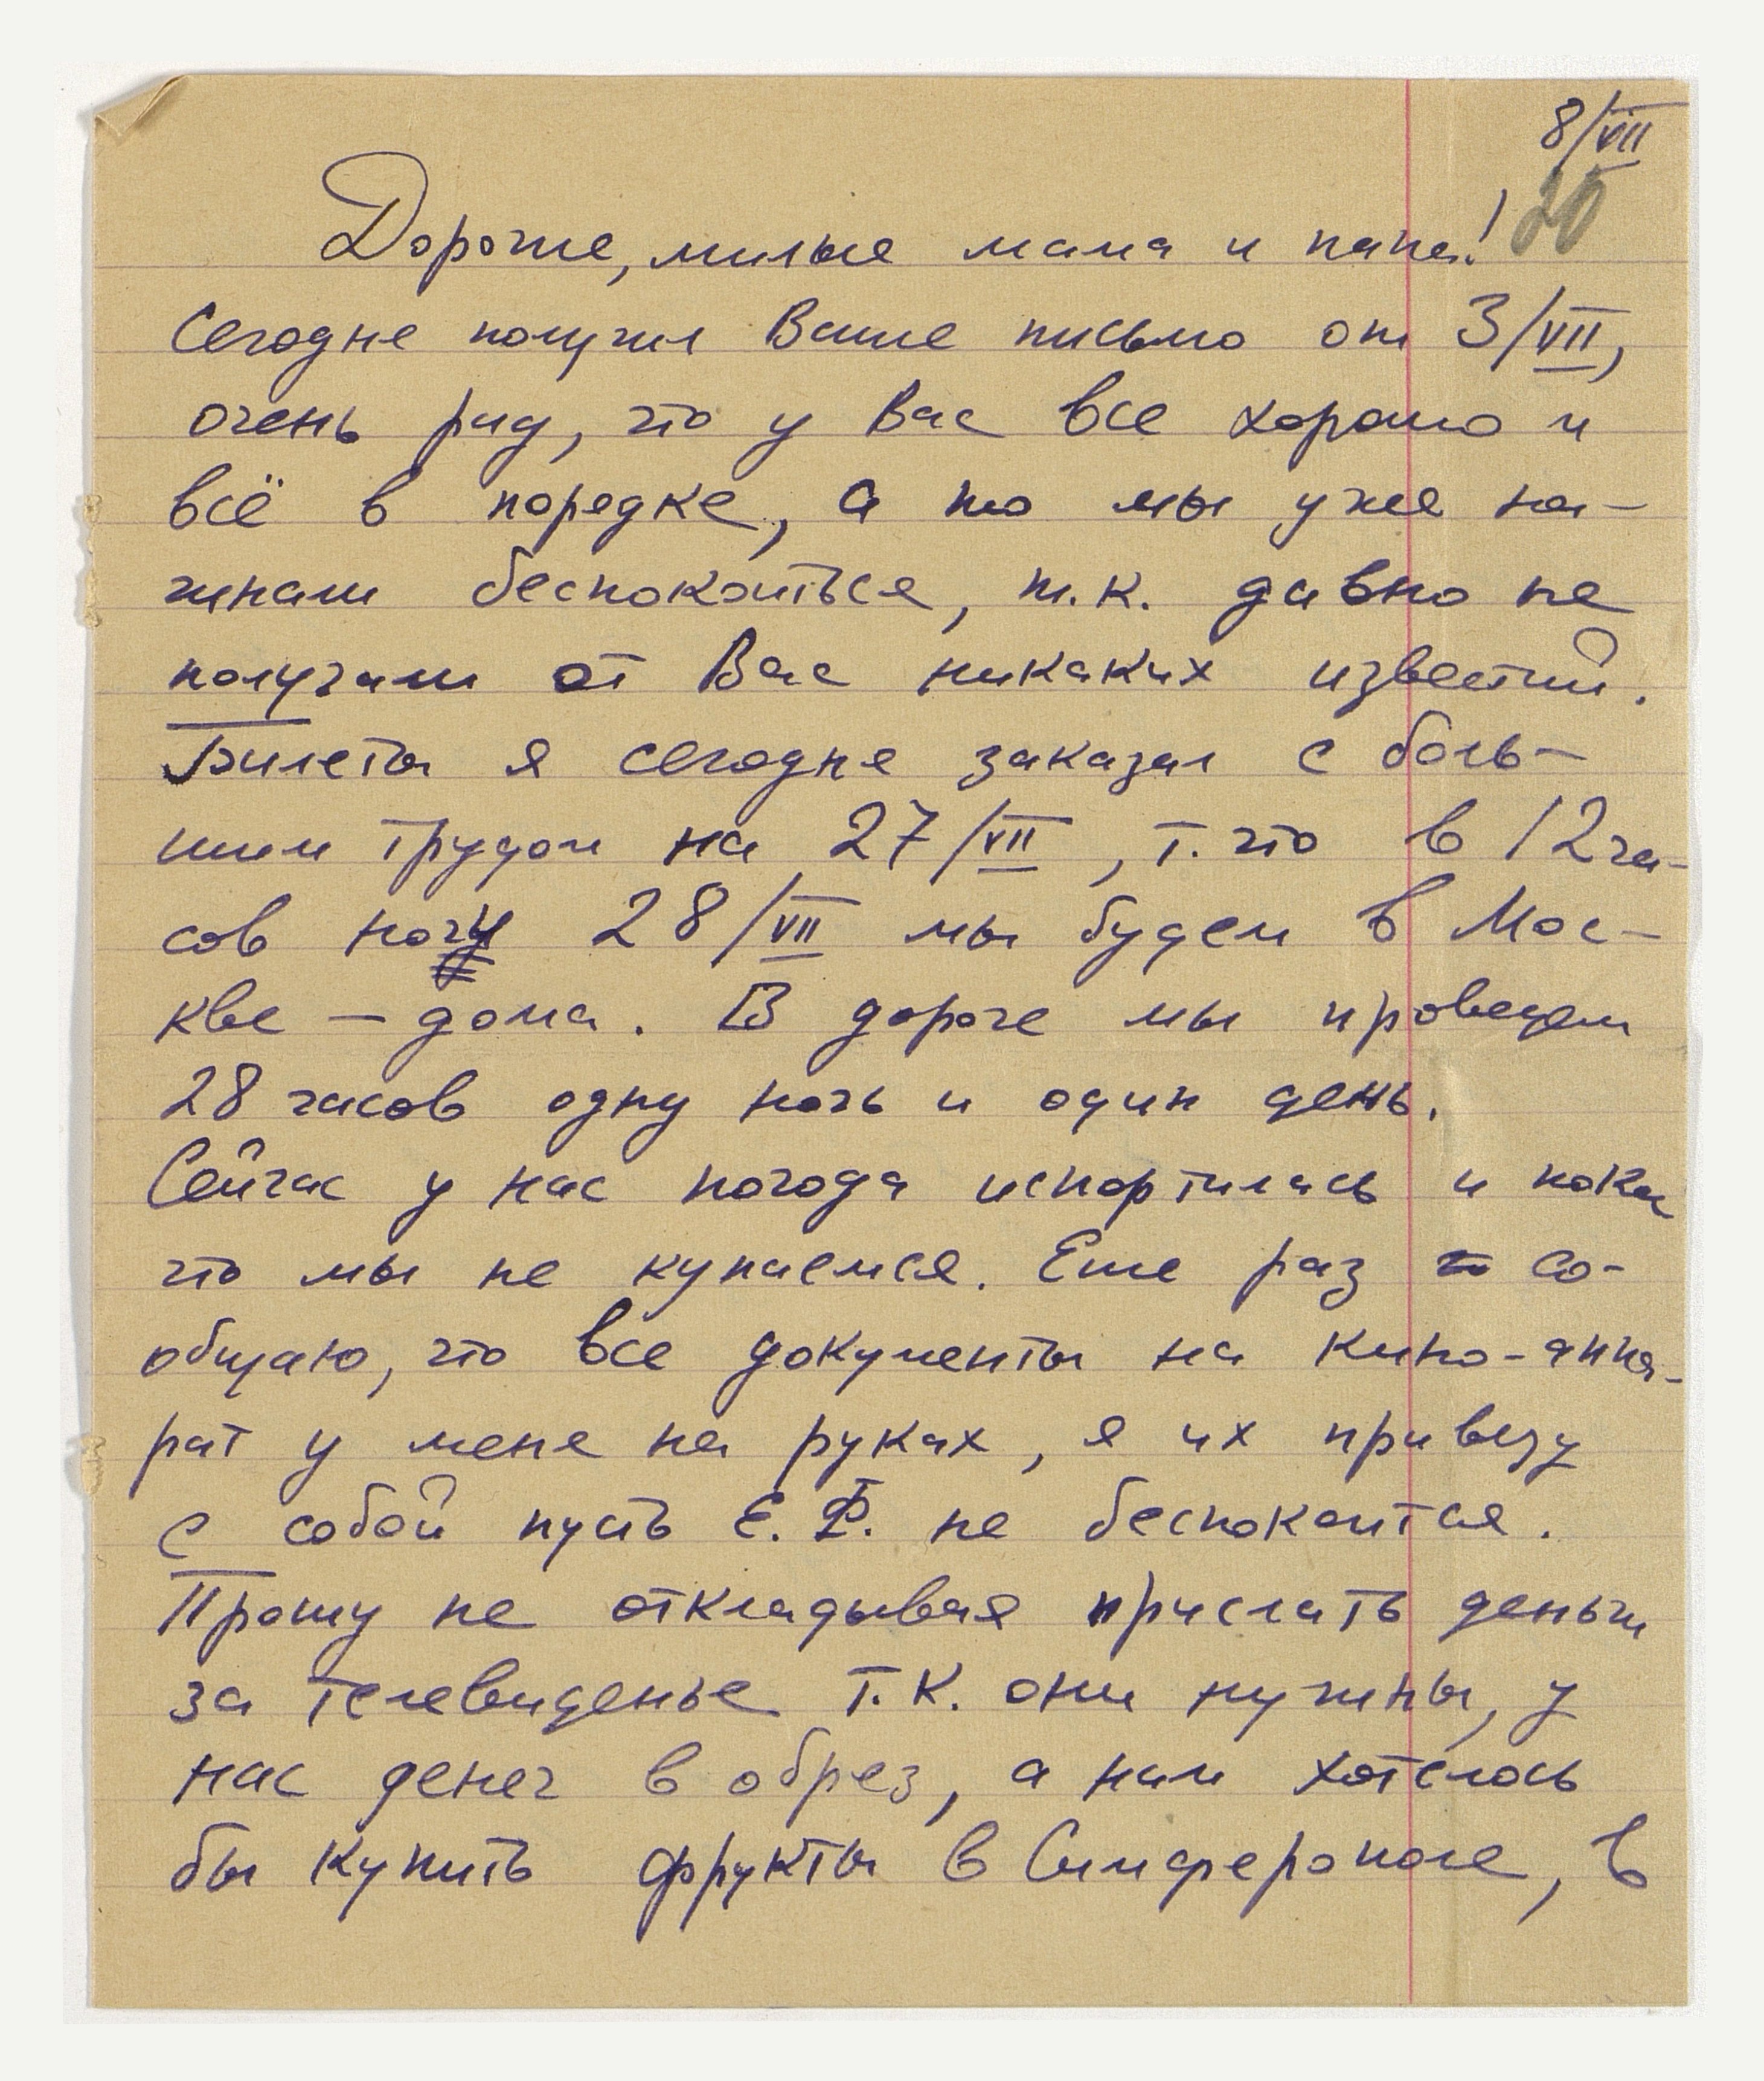 8/VII
20
Дорогие, милые мама и папа!
Сегодня получил Ваше письмо от 3/VII,
очень рад, что у Вас все хорошо и
всё в порядке, а то мы уже на-
чинали беспокоиться, т.к. давно не
получали от Вас никаких известий.
Билеты я сегодня заказал с боль-
шим трудом на 27/VII, т. что в 12 ча-
сов ночи 28/VII мы будем в Мос-
кве – дома. В дороге мы проведем
28 часов одну ночь и один день.
Сейчас у нас погода испортилась и пока
что мы не купаемся. Еще раз со-
общаю, что все документы на кино-аппа-
рат у меня на руках, я их привезу
с собой пусть Е.Ф. не беспокоится.
Прошу не откладывая прислать деньги
за телевиденье т.к. они нужны, у
нас денег в обрез, а нам хотелось
бы купить фрукты в Симферополе, в